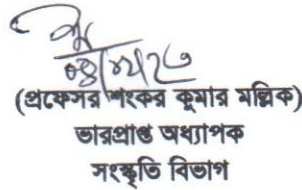 (প্রফেসর শংকর কুমার মল্লিক)
ভারপ্রাপ্ত অধ্যাপক
সংস্কৃতি বিভাগ